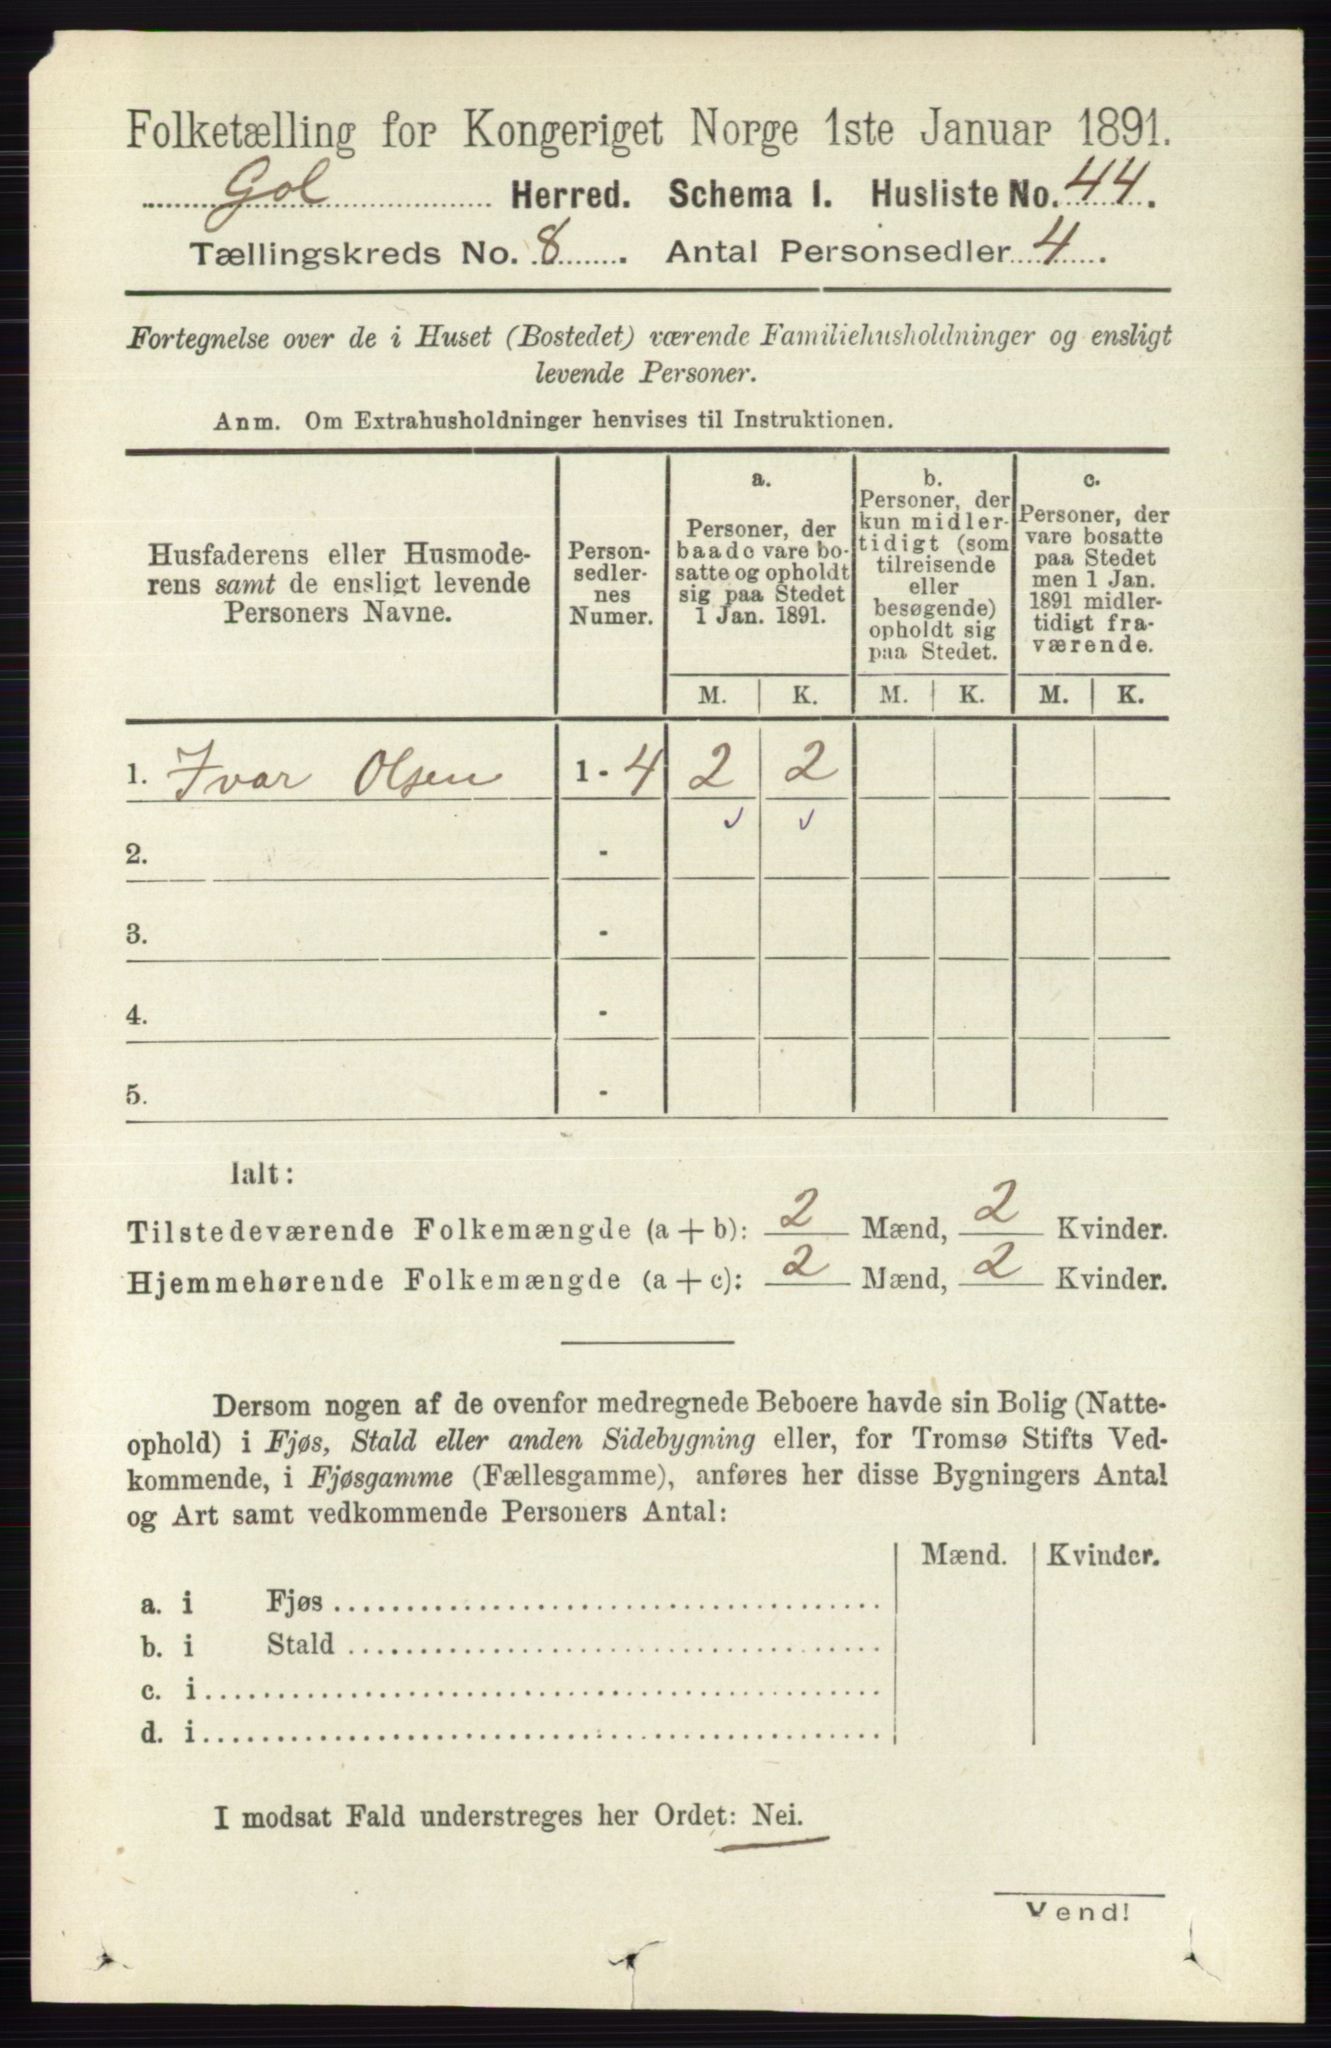 Folketælling for Kongeriget Norge 1ste Januar 1891.
Gol Herred. Schema I. Husliste No. 44.
Tællingskreds No. 8. Antal Personsedler 4.
Fortegnelse over de i Huset (Bostedet) værende Familiehusholdninger og ensligt
levende Personer.
Anm. Om Extrahusholdninger henvises til Instruktionen.
Husfaderens eller Husmode-
rens samt de ensligt levende
Personers Navne.
Person-
sedler-
nes
Numer.
a.
Personer, der
baade vare bo-
satte og opholdt
sig paa Stedet
1 Jan. 1891.
b.
Personer, der
kun midler-
tidigt (som
tilreisende
eller
besøgende)
opholdt sig
paa Stedet.
c.
Personer, der
vare bosatte
paa Stedet
men 1 Jan.
1891 midler-
tidigt fra-
værende.
M. K. M. K. M. K.
1. Ivar Olsen 1 - 4 2 2
2. -
3. -
4. -
5. -
Ialt:
Tilstedeværende Folkemængde (a + b): 2 Mænd, 2 Kvinder.
Hjemmehørende Folkemængde (a + c): 2 Mænd, 2 Kvinder.
Dersom nogen af de ovenfor medregnede Beboere havde sin Bolig (Natte-
ophold) i Fjøs, Stald eller anden Sidebygning eller, for Tromsø Stifts Ved-
kommende, i Fjøsgamme (Fællesgamme), anføres her disse Bygningers Antal
og Art samt vedkommende Personers Antal:
Mænd. Kvinder.
a. i Fjøs
b. i Stald
c. i
d. i
I modsat Fald understreges her Ordet: Nei.
Vend!